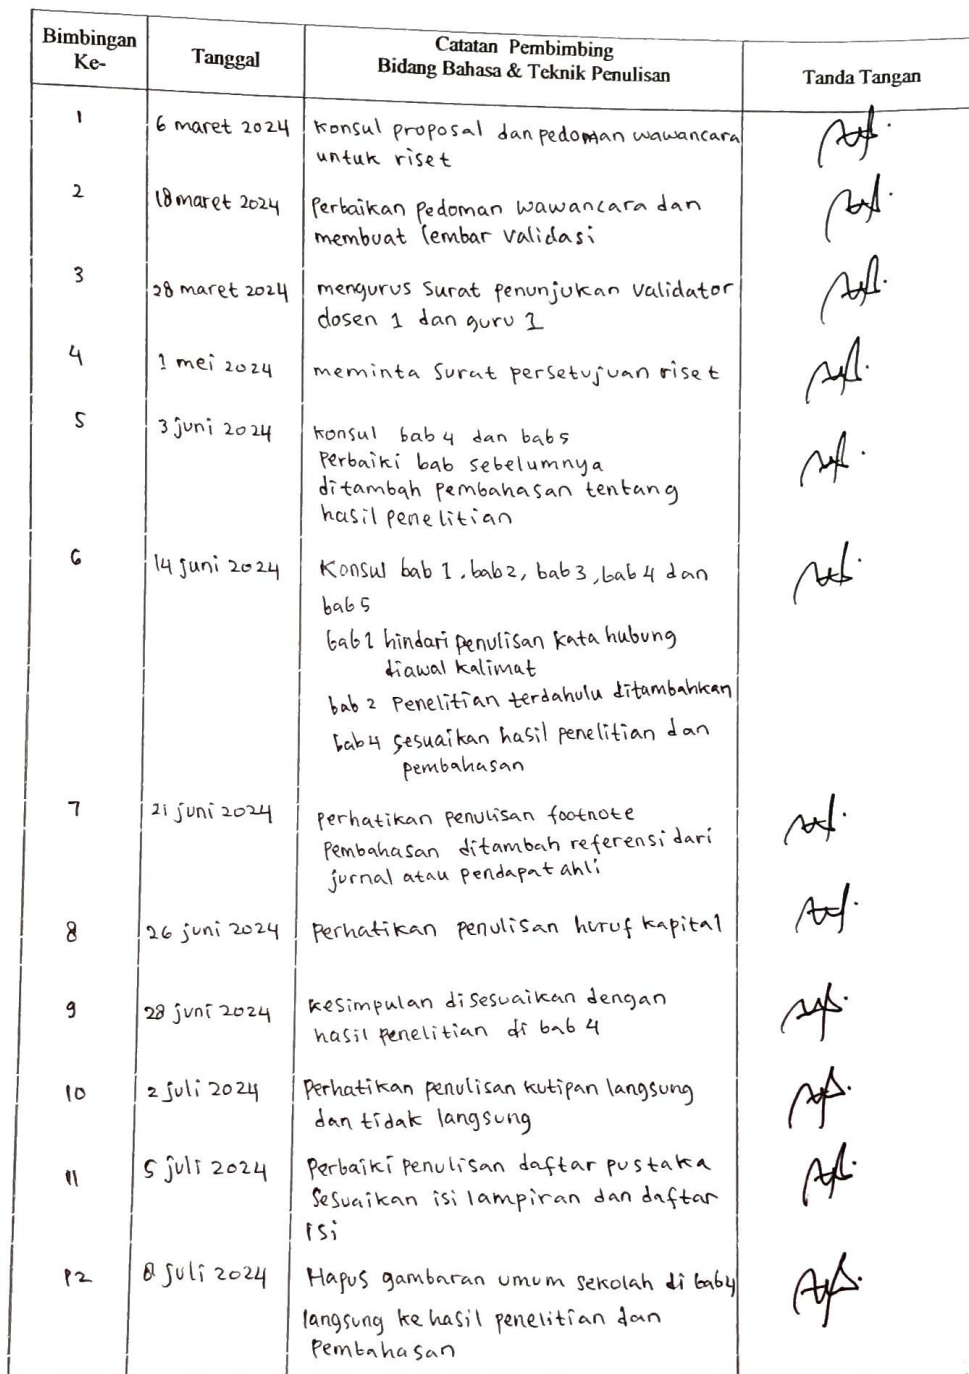 Bimbingan Ke-
Tanggal
Catatan Pembimbing
Bidang Bahasa & Teknik Penulisan
Tanda Tangan
1
6 maret 2024
Konsul proposal dan pedoman wawancara
untuk riset
2
18 maret 2024
Perbaikan pedoman wawancara dan
membuat lembar validasi
3
28 maret 2024
mengurus surat penunjukan validator
dosen 1 dan guru 1
4
1 mei 2024
meminta surat persetujuan riset
5
3 juni 2024
Konsul bab 4 dan bab 5
Perbaiki bab sebelumnya
ditambah pembahasan tentang
hasil penelitian
6
14 juni 2024
Konsul bab 1, bab 2, bab 3, bab 4 dan
bab 5
bab 1 hindari penulisan kata hubung
diawal kalimat
bab 2 Penelitian terdahulu ditambahkan
bab 4 sesuaikan hasil penelitian dan
pembahasan
7
21 juni 2024
perhatikan penulisan footnote
Pembahasan ditambah referensi dari
jurnal atau pendapat ahli
8
26 juni 2024
Perhatikan penulisan huruf kapital
9
28 juni 2024
Kesimpulan disesuaikan dengan
hasil penelitian di bab 4
10
2 juli 2024
Perhatikan penulisan kutipan langsung
dan tidak langsung
11
5 juli 2024
Perbaiki penulisan daftar pustaka
Sesuaikan isi lampiran dan daftar
isi
12
8 juli 2024
Hapus gambaran umum sekolah di bab 4
langsung ke hasil penelitian dan
Pembahasan